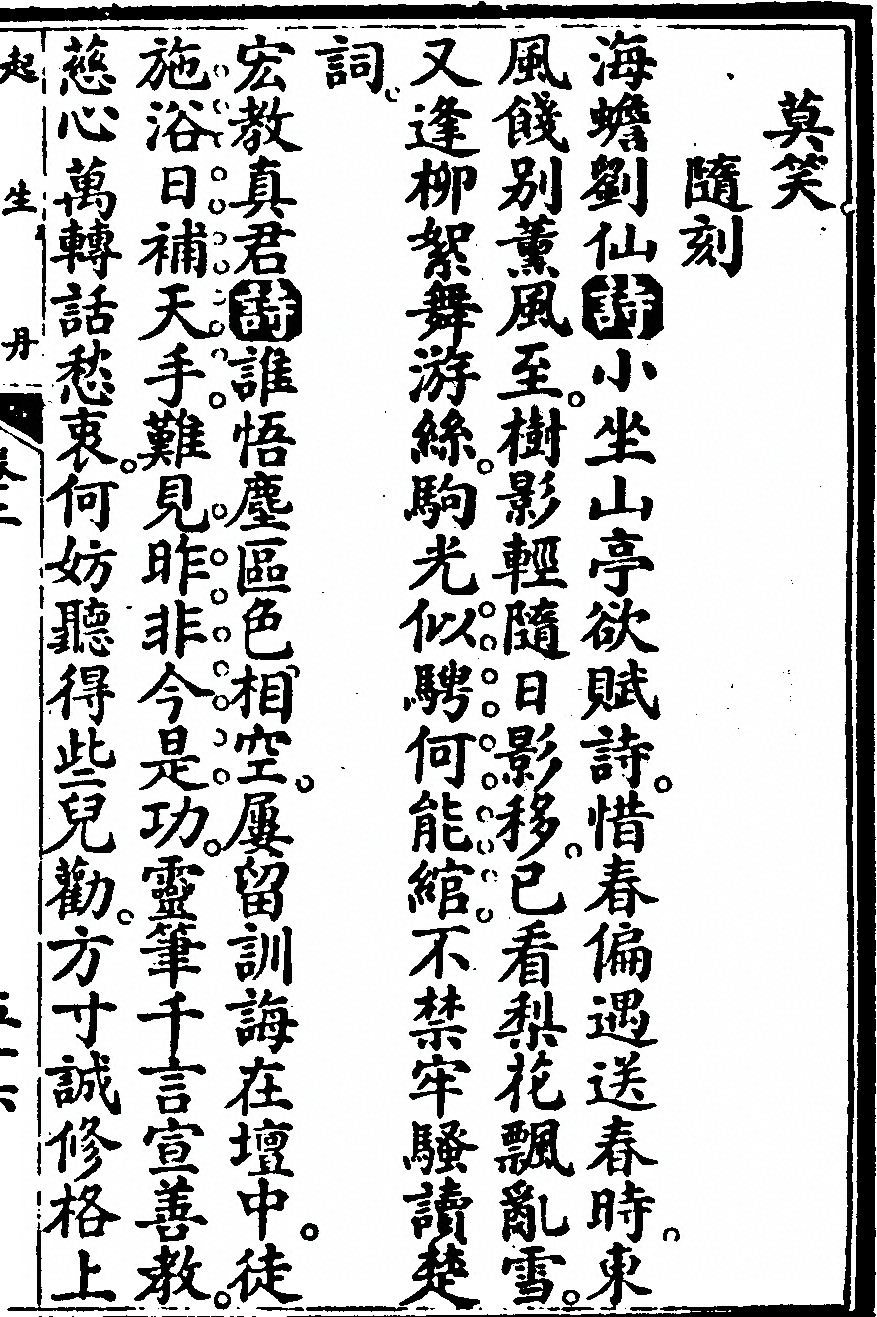 莫笑
隨刻
海蟾劉仙詩小坐山亭欲賦詩。惜春偏遇送春時。東
風餞別薰風至。樹影輕隨日影移。已看梨花飄亂雪。
又逢柳絮舞游絲。駒光似騁何能綰。不禁牢騷讀楚
詞。
宏教真君詩誰悟塵區色相空。屢留訓誨在壇中。徒
施浴日補天手。難見昨非今是功。靈筆千言宣善教。
慈心萬轉話愁衷。何妨聽得些兒勸。方寸誠修格上
起生丹
卷二
五十六